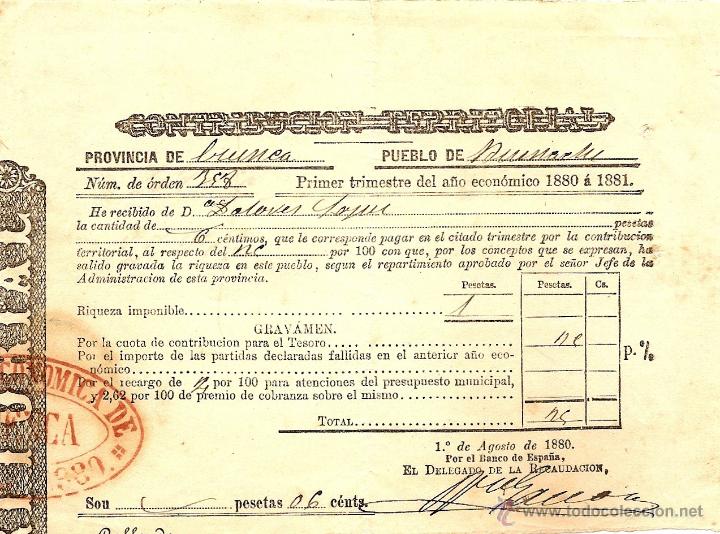 CONTRIBUCION TERRITORIAL
PROVINCIA DE Cuenca PUEBLO DE
Núm. de órden 358 Primer trimestre del año económico 1880 á 1881.
He recibido de D.ª Dolores
la cantidad de pesetas
6 céntimos, que le corresponde pagar en el citado trimestre por la contribucion
territorial, al respecto del por 100 con que, por los conceptos que se expresan, ha
salido gravada la riqueza en este pueblo, segun el repartimiento aprobado por el señor Jefe de la
Administracion de esta provincia.
Pesetas. Pesetas. Cs.
Riqueza imponible. 1
GRAVÁMEN.
Por la cuota de contribucion para el Tesoro
Por el importe de las partidas declaradas fallidas en el anterior año eco-
nómico
p. %
Por el recargo de por 100 para atenciones del presupuesto municipal,
y 2,62 por 100 de premio de cobranza sobre el mismo
TOTAL
1.º de Agosto de 1880.
Por el Banco de España,
EL DELEGADO DE LA RECAUDACION,
Son pesetas 06 cénts.
ECONOMICA DE
1880.
todocoleccion
www.todocoleccion.net